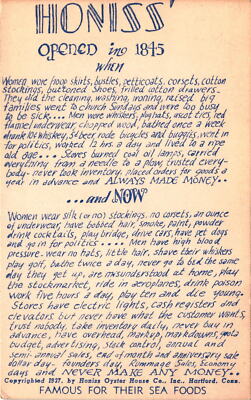 HONISS'
opened in 1845
when
Women wore hoop skirts, bustles, petticoats, corsets, cotton
stockings, buttoned shoes, frilled cotton drawers.
They did the cleaning, washing, ironing, raised big
families went to church Sundays and were too busy
to be sick.... Men wore whiskers, pig hats, ascot ties, red
flannel underwear, chopped wood, bathed once a week
drank 10¢ whiskey, 5¢ beer rode bicycles and buggies, went in
for politics, worked 12 hrs. a day and lived to a ripe
old age... Stores burned coal oil lamps, carried
everything from a needle to a plow, trusted every-
body - never took inventory, placed orders for goods a
year in advance and ALWAYS MADE MONEY..
...and NOW
Women wear silk (or no) stockings, no corsets, an ounce
of underwear, have bobbed hair, smoke, paint, powder
drink cocktails, play bridge, drive cars, have pet dogs
and go in for politics .... Men have high blood
pressure, wear no hats, little hair, shave their whiskers
play golf, bathe twice a day, never go to bed the same
day they get up, are misunderstood at home, play
the stockmarket, ride in aeroplanes, drink poison
work five hours a day, play ten and die young.
Stores have electric lights, cash registers and
elevators but never have what the customer wants,
trust nobody, take inventory daily, never buy in
advance, have overhead, markup, markdowns, quota
budget, advertising, stock control, annual and
semi-annual sales, end of month and anniversary sale
dollar day - Founders day, Rummage Sales, Economy
days and NEVER MAKE ANY MONEY..
Copyrighted 1937, by Honiss Oyster House Co., Inc., Hartford, Conn.
FAMOUS FOR THEIR SEA FOODS